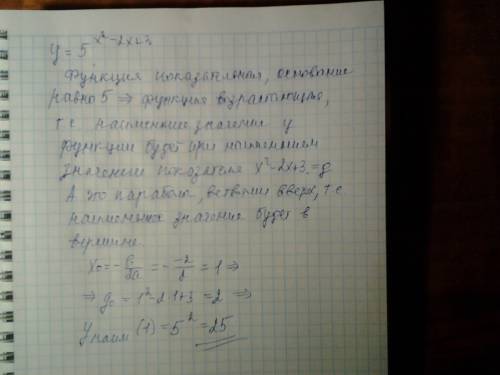 y = 5^(x²-2x+3)
Функция показательная, основание
равно 5 ⇒ функция возрастающая,
т.е наименьшее значение у
функции будет при наименьшем
значении показателя x²-2x+3 = g
А это парабола, ветвями вверх, т.е
наименьшее значение будет в
вершине.
x₀ = -b/2a = - -2/2 = 1 ⇒
⇒ g₀ = 1²-2·1+3 = 2 ⇒
y наим (1) = 5² = 25